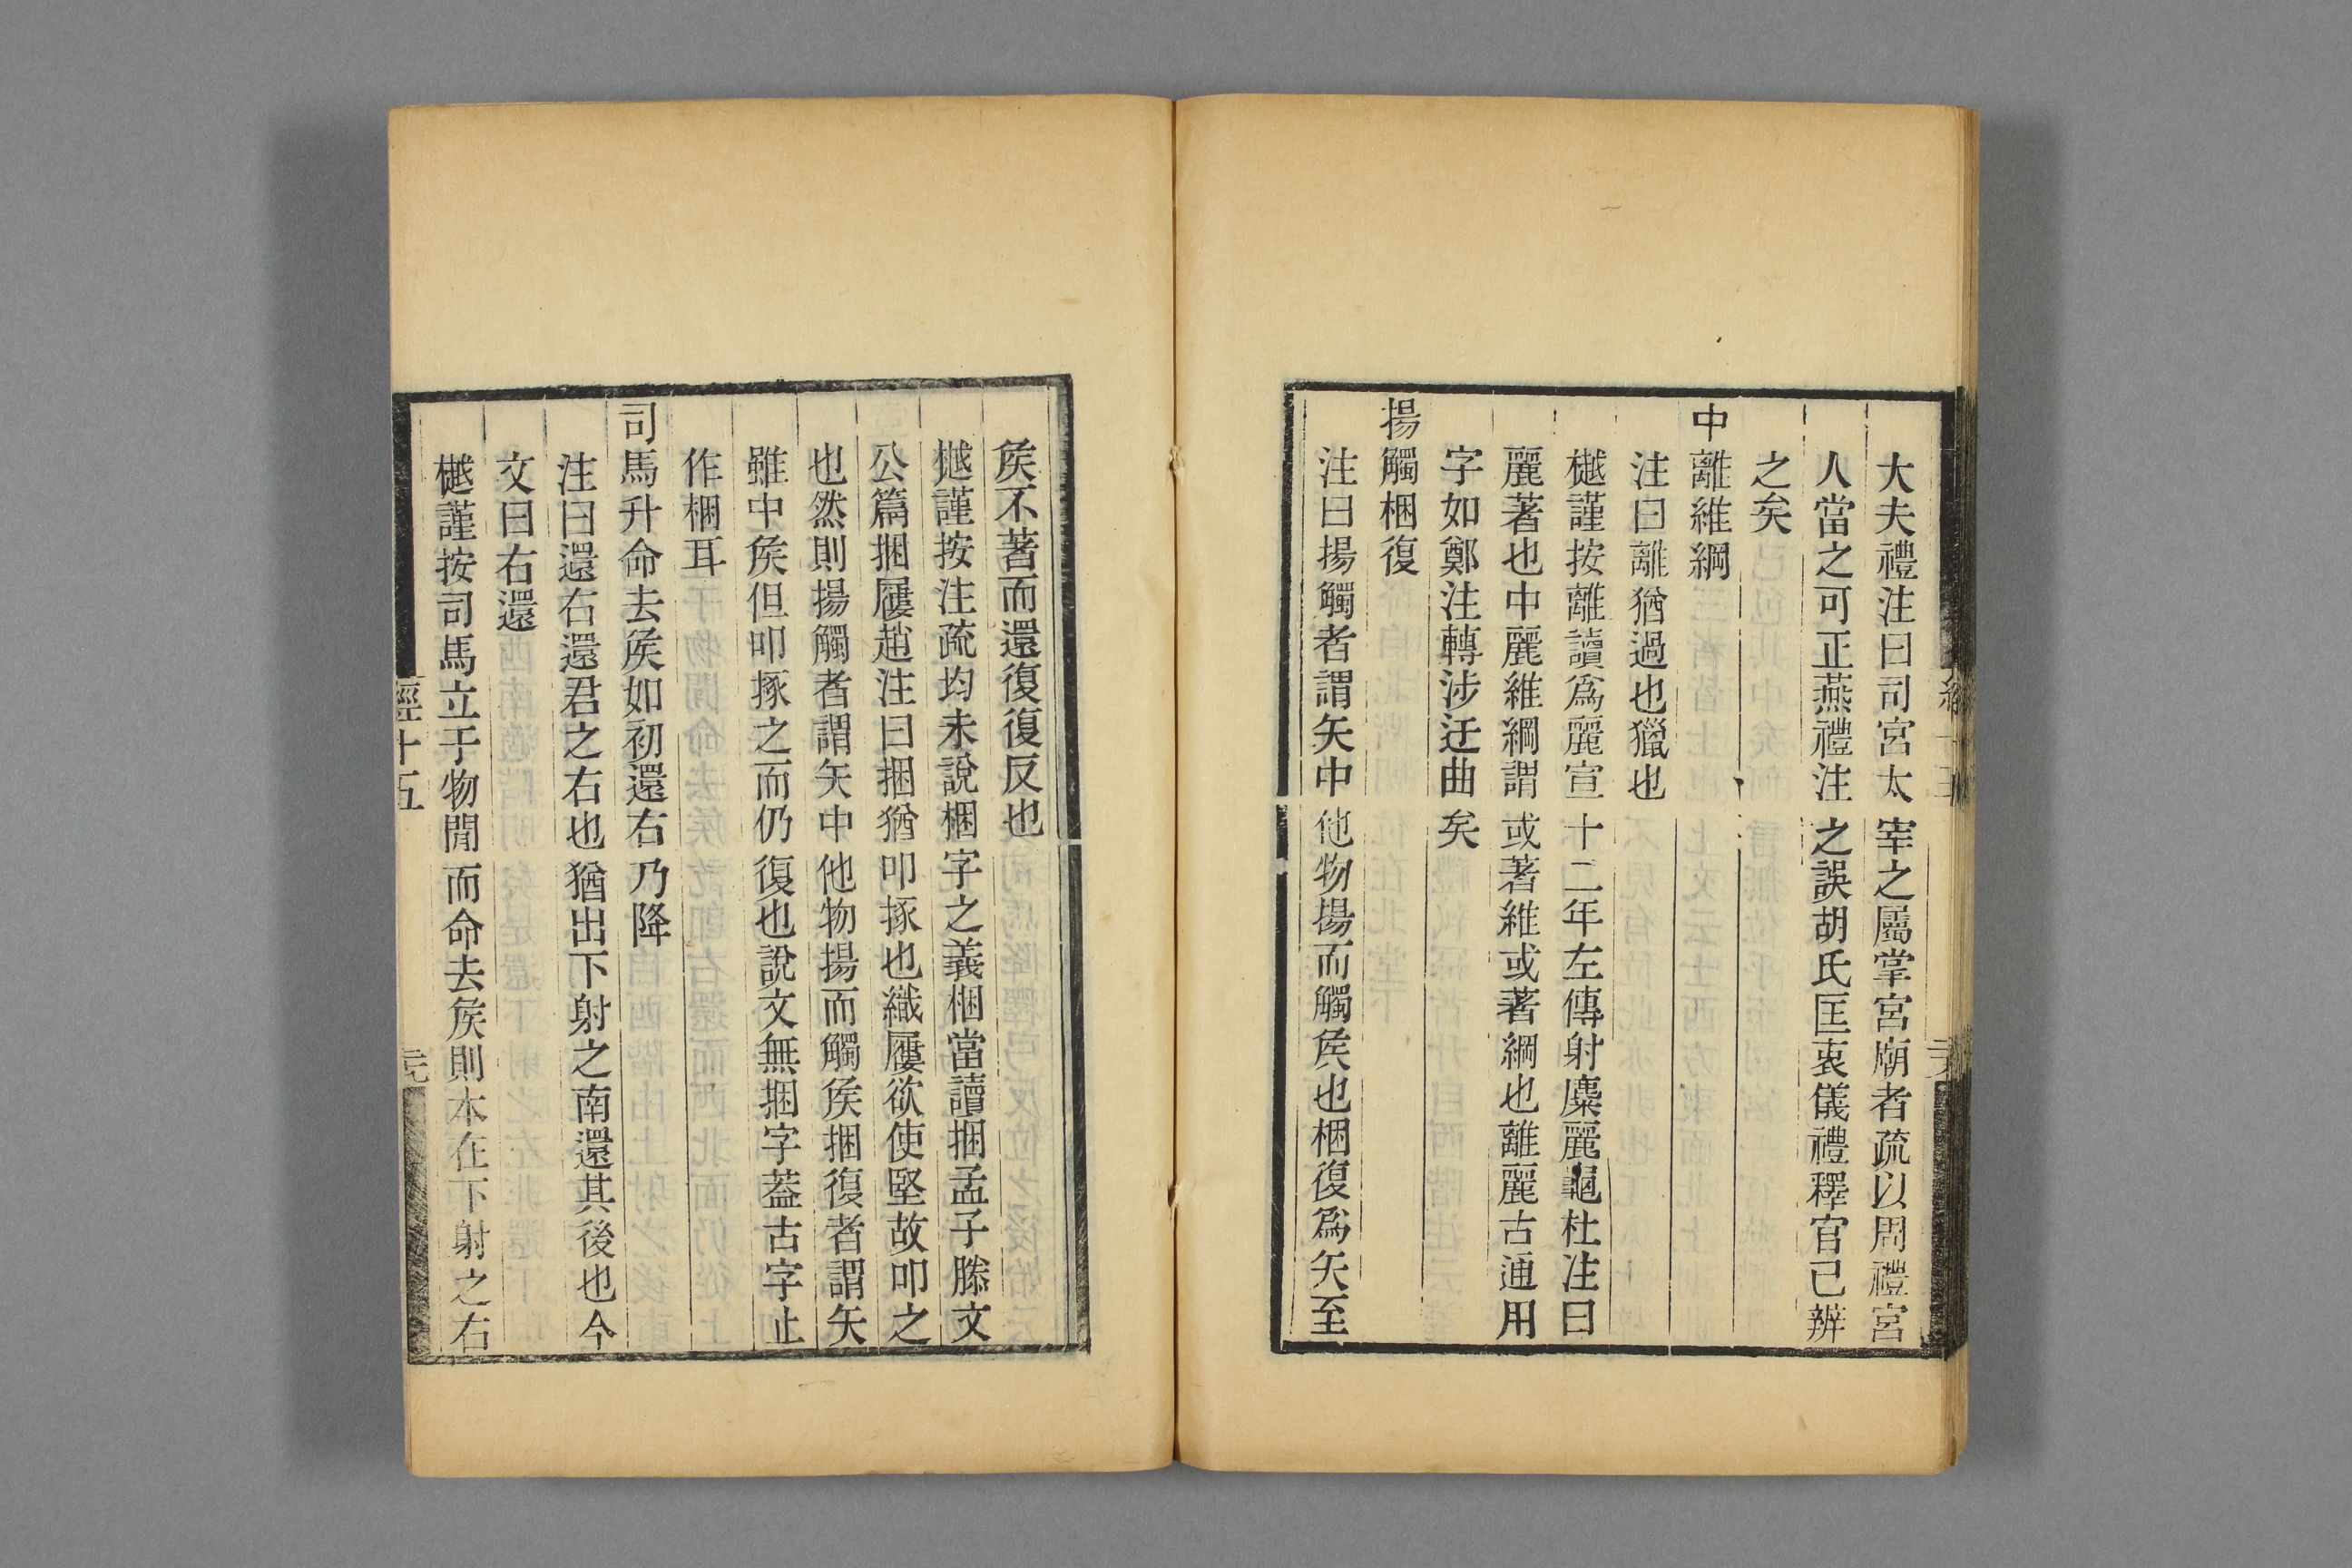 大夫禮注曰司宮太宰之屬掌宮廟者疏以周禮宮
人當之可正燕禮注之誤胡氏匡衷儀禮釋官已辨
之矣
中離維綱
注曰離猶過也獵也
樾謹按離讀爲麗宣十二年左傳射麋麗龜杜注曰
麗著也中麗維綱謂或著維或著綱也離麗古通用
字如鄭注轉涉迂曲矣
揚觸梱復
注曰揚觸者謂矢中他物揚而觸矦也梱復爲矢至
矦不著而還復復反也
樾謹按注疏均未說梱字之義梱當讀捆孟子滕文
公篇捆屨趙注曰捆猶叩㧻也織屨欲使堅故叩之
也然則揚觸者謂矢中他物揚而觸矦捆復者謂矢
雖中矦但叩㧻之而仍復也說文無捆字葢古字止
作梱耳
司馬升命去矦如初還右乃降
注曰還右還君之右也猶出下射之南還其後也今
文曰右還
樾謹按司馬立于物閒而命去矦則本在下射之右
經十五